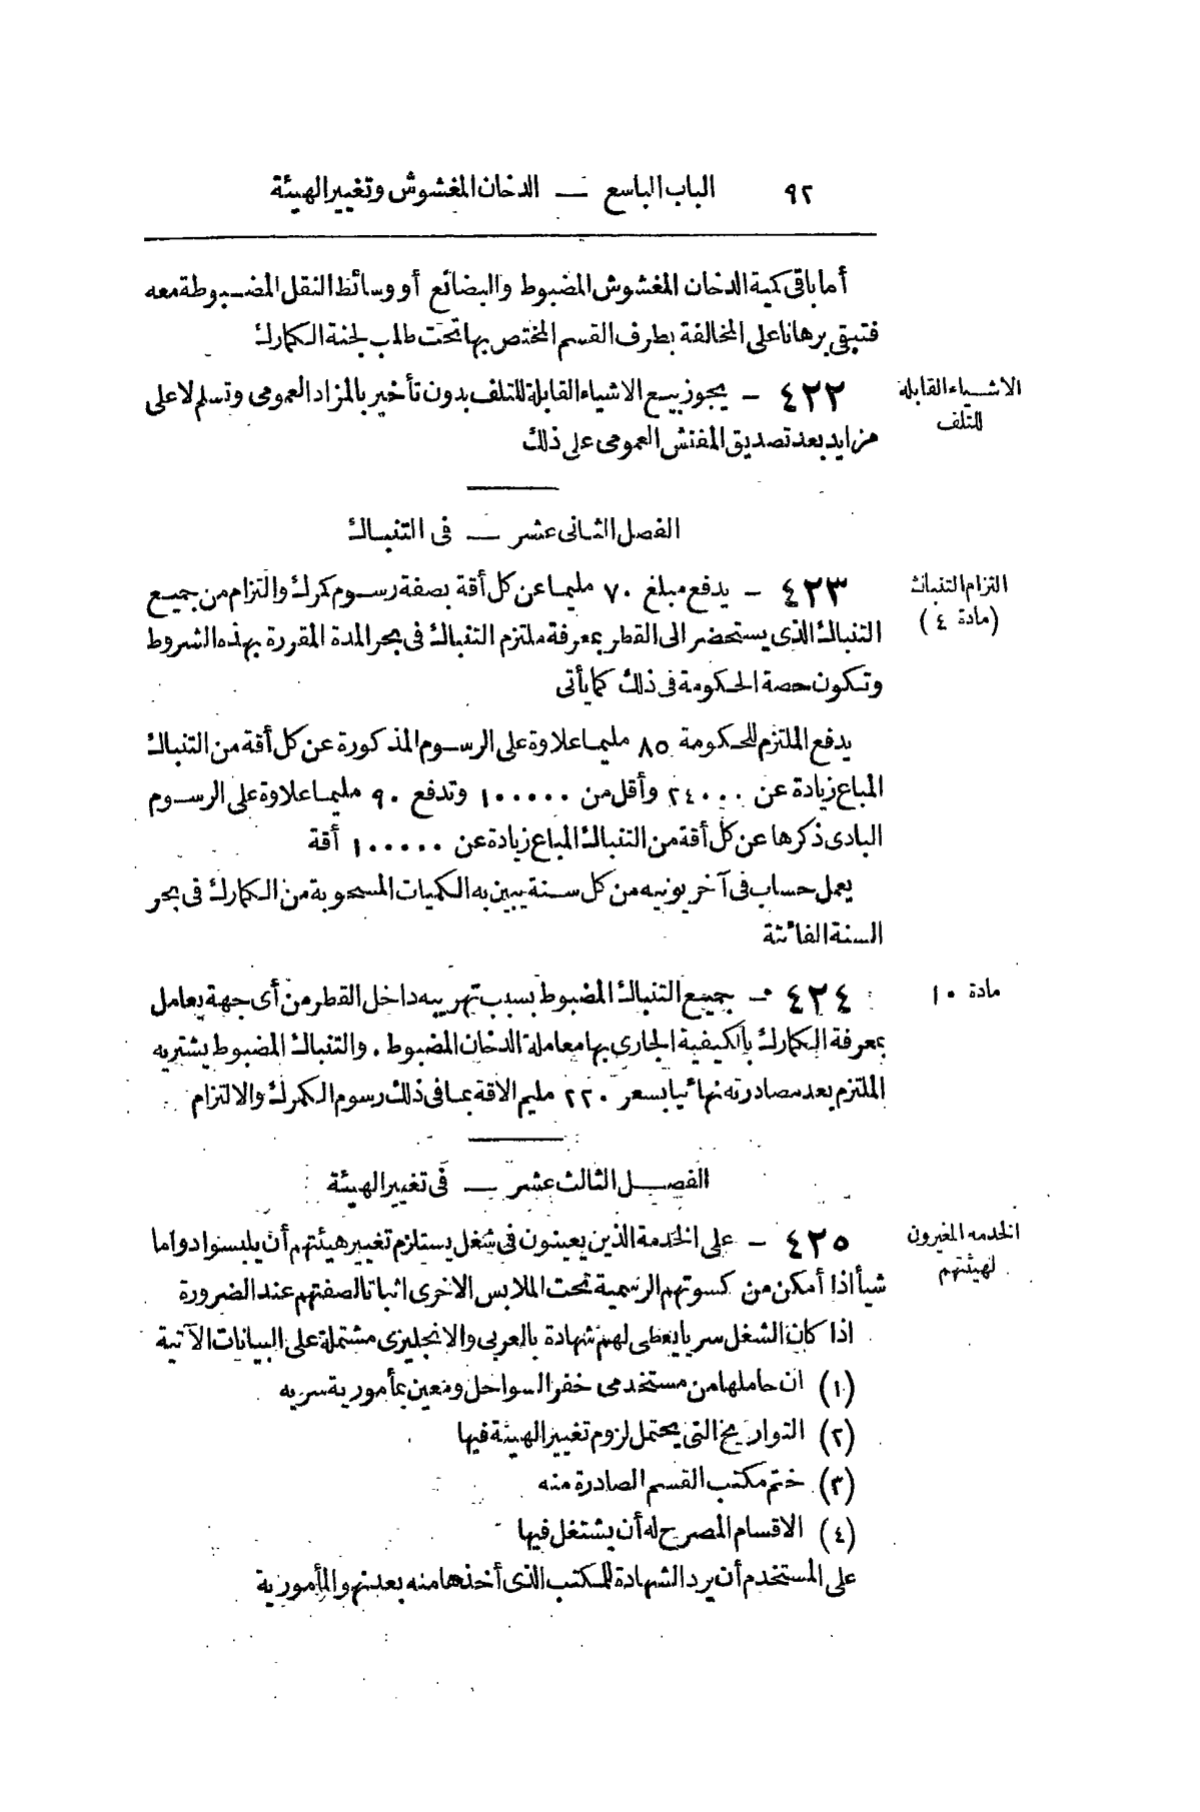 ٩٢ الباب التاسع — الدخان المغشوش وتغيير الهيئة
أما باقى كمية الدخان المغشوش المضبوط والبضائع أو وسائط النقل المضبوطة معه
فتبقى برهانا على المخالفة بطرف القسم المختص بها تحت طلب لجنة الكمارك
الاشياء القابلة
للتلف
٤٢٢ — يجوز بيع الاشياء القابلة للتلف بدون تأخير بالمزاد العمومى وتسلم لأعلى
مزايد بعد تصديق المفتش العمومى على ذلك
الفصل الثانى عشر — فى التنباك
التزام التنباك
(مادة ٤)
٤٢٣ — يدفع مبلغ ٧٠ مليما عن كل أقة بصفة رسوم كمرك والتزام من جميع
التنباك الذى يستحضر الى القطر بمعرفة ملتزم التنباك فى بحر المدة المقررة بهذه الشروط
وتكون حصة الحكومة فى ذلك كما يأتى
يدفع الملتزم للحكومة ٨٥ مليما علاوة على الرسوم المذكورة عن كل أقة من التنباك
المباع زيادة عن ٢٤٠٠٠ وأقل من ١٠٠٠٠٠ وتدفع ٩٠ مليما علاوة على الرسوم
البادى ذكرها عن كل أقة من التنباك المباع زيادة عن ١٠٠٠٠٠ أقة
يعمل حساب فى آخر يونيه من كل سنة يبين به الكميات المسحوبة من الكمارك فى بحر
السنة الفائتة
مادة ١٠
٤٢٤ — جميع التنباك المضبوط بسبب تهريبه داخل القطر من أى جهة يعامل
بمعرفة الكمارك بالكيفية الجارى بها معاملة الدخان المضبوط . والتنباك المضبوط يشتريه
الملتزم بعد مصادرته نهائيا بسعر ٢٢٠ مليم الاقة بما فى ذلك رسوم الكمرك والالتزام
الفصل الثالث عشر — فى تغيير الهيئة
الخدمه المغيرون
لهيئتهم
٤٢٥ — على الخدمة الذين يعينون فى شغل يستلزم تغيير هيئتهم أن يلبسوا دواما
شيأ اذا أمكن من كسوتهم الرسمية تحت الملابس الاخرى اثباتا لصفتهم عند الضرورة
اذا كان الشغل سريا يعطى لهم شهادة بالعربى والانجليزى مشتملة على البيانات الآتية
(١) ان حاملها من مستخدمى خفر السواحل ومعين بمأمورية سريه
(٢) التواريخ التى يحتمل لزوم تغيير الهيئة فيها
(٣) ختم مكتب القسم الصادرة منه
(٤) الاقسام المصرح له أن يشتغل فيها
على المستخدم أن يرد الشهادة للمكتب الذى أخذها منه بعد نهو المأمورية